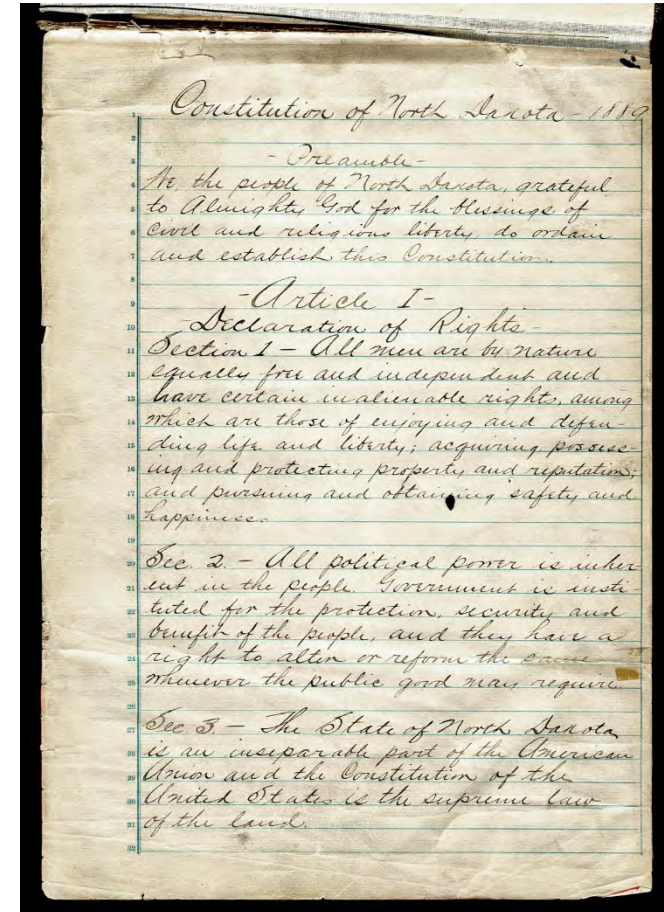 1 Constitution of North Dakota - 1889
2
3 - Preamble -
4 We, the people of North Dakota, grateful
5 to Almighty God for the blessings of
6 civil and religious liberty, do ordain
7 and establish this Constitution.
8
9 - Article I -
10 - Declaration of Rights -
11 Section 1 - All men are by nature
12 equally free and independent and
13 have certain inalienable rights, among
14 which are those of enjoying and defen-
15 ding life and liberty; acquiring possess-
16 ing and protecting property and reputation;
17 and pursuing and obtaining safety and
18 happiness.
19
20 Sec. 2. - All political power is inher
21 ent in the people. Government is insti-
22 tuted for the protection, security and
23 benefit of the people, and they have a
24 right to alter or reform the same
25 whenever the public good may require.
26
27 Sec. 3. - The State of North Dakota
28 is an inseparable part of the American
29 Union and the Constitution of the
30 United States is the supreme law
31 of the land.
32